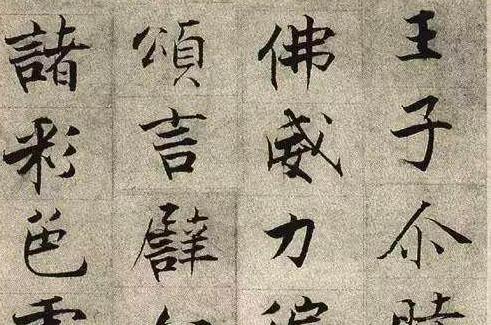 王子尒時
佛威力
頌言譬
諸彩色